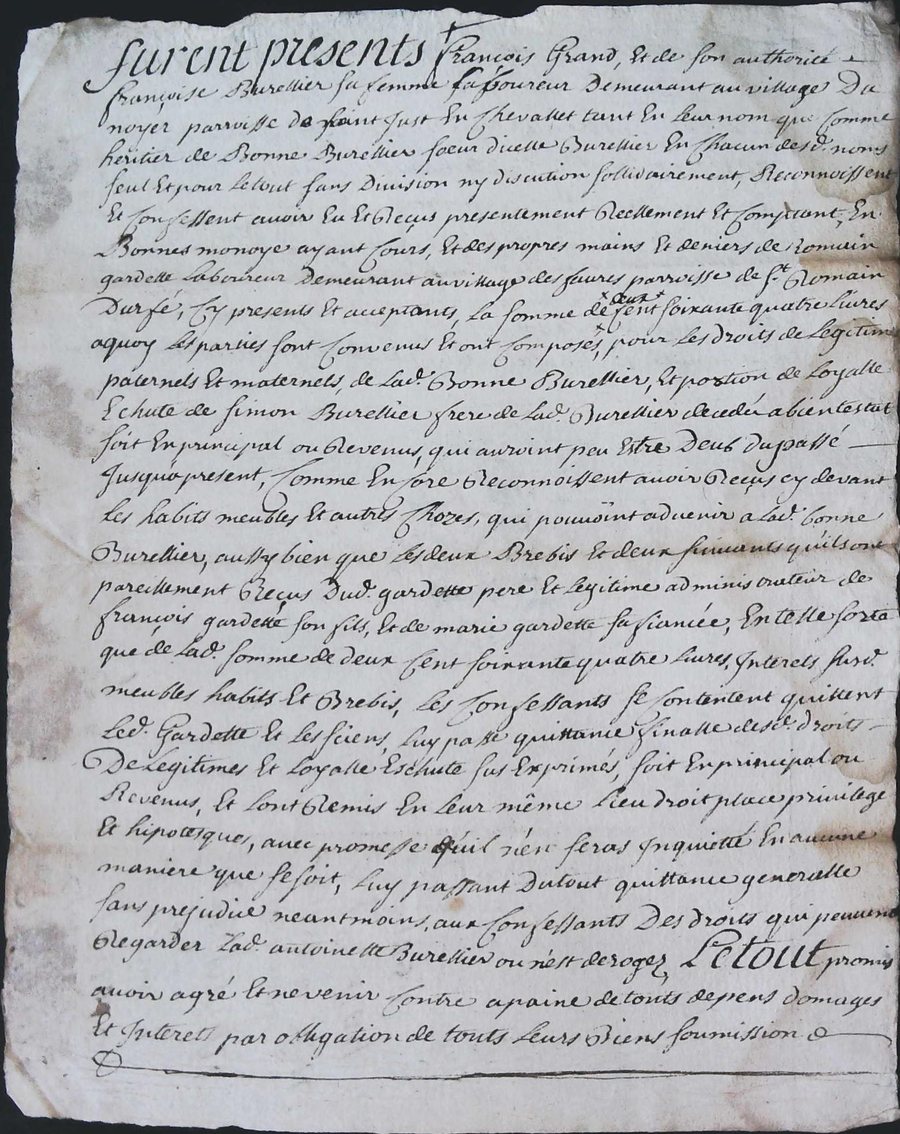 furent presents françois Grand, Et de son authorité
françoise Burellier sa femme, laboureur Demeurant au village Du
noyer parroisse De saint Just En Chevallet tant En Leur nom que Comme
heritier de Bonne Burellier soeur dicelle Burellier En Chacun desd. noms
seul Et pour Letout sans Division ny discution sollidairement, Reconnoissent
Et Confessent avoir Eu Et Reçus presentement Reellement Et Comptant, En
Bonnes monoye ayant Cours, Et des propres mains Et deniers de Romain
gardette Laboureur Demeurant au village des faures parroisse de st. Romain
Durfé, Cy presents Et acceptants, La somme de deux Cent soixante quatre Livres
aquoy Les parties sont Convenus Et ont Composés, pour Les droits de Legitim
paternels Et maternels, de Lad. Bonne Burellier, Et portion de Loyalle
Echute de simon Burellier frere de Lad. Burellier decedé abientestat
soit En principal ou Revenus, qui auroint peu Estre Deub du passé
Jusquapresent, Comme Encore Reconnoissent avoir Reçus cy devant
Les habits meubles Et autres Chozes, qui pouvoint advenir a Lad. bonne
Burellier, aussy bien que Les deux Brebis Et deux suivants quils ont
pareillement Reçus Dud. gardette pere Et Legitime administrateur de
françois gardette son fils, Et de marie gardette sa fiancée, En telle sorte
que de Lad. somme de deux Cent soixante quatre Livres, Interets surd.
meubles habits Et Brebis, Les Confessants se Contentent quittent
Led. Gardette Et Les siens, Luy passe quittance finalle desd. droits
De Legitimes Et Loyalle Eschute sus Exprimés, soit En principal ou
Revenus, Et Lont Remis En Leur même Lieu droit place privilege
Et hipotesque, avec promesse quil n'en seras Inquietté En aucune
maniere que se soit, Luy passant Dutout quittance generalle
sans prejudice neantmoins, aux Confessants Des droits qui peuvent
Regarder Lad. antoinette Burellier ou n'est derogez Letout promis
avoir agré Et ne venir Contre apaine de touts depens domages
Et Interets par obligation de touts Leurs Biens soumission &